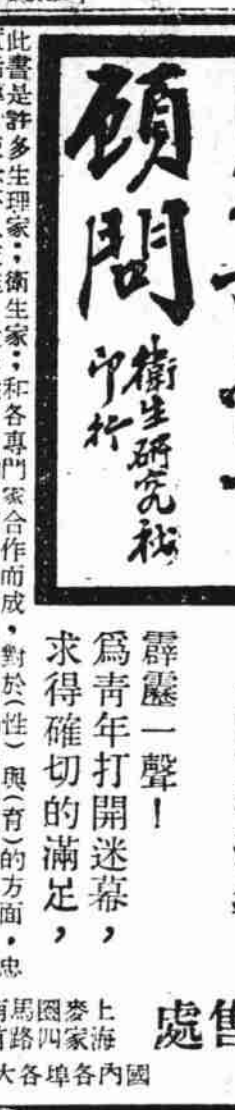 顧問
衛生研究社
印行
霹靂一聲！
爲青年打開迷幕，
求得確切的滿足，
此書是許多生理家；衛生家；和各專門家合作而成，對於（性）與（育）的方面，忠
售
處
上海
麥家
圈四
馬路
國內各埠各大